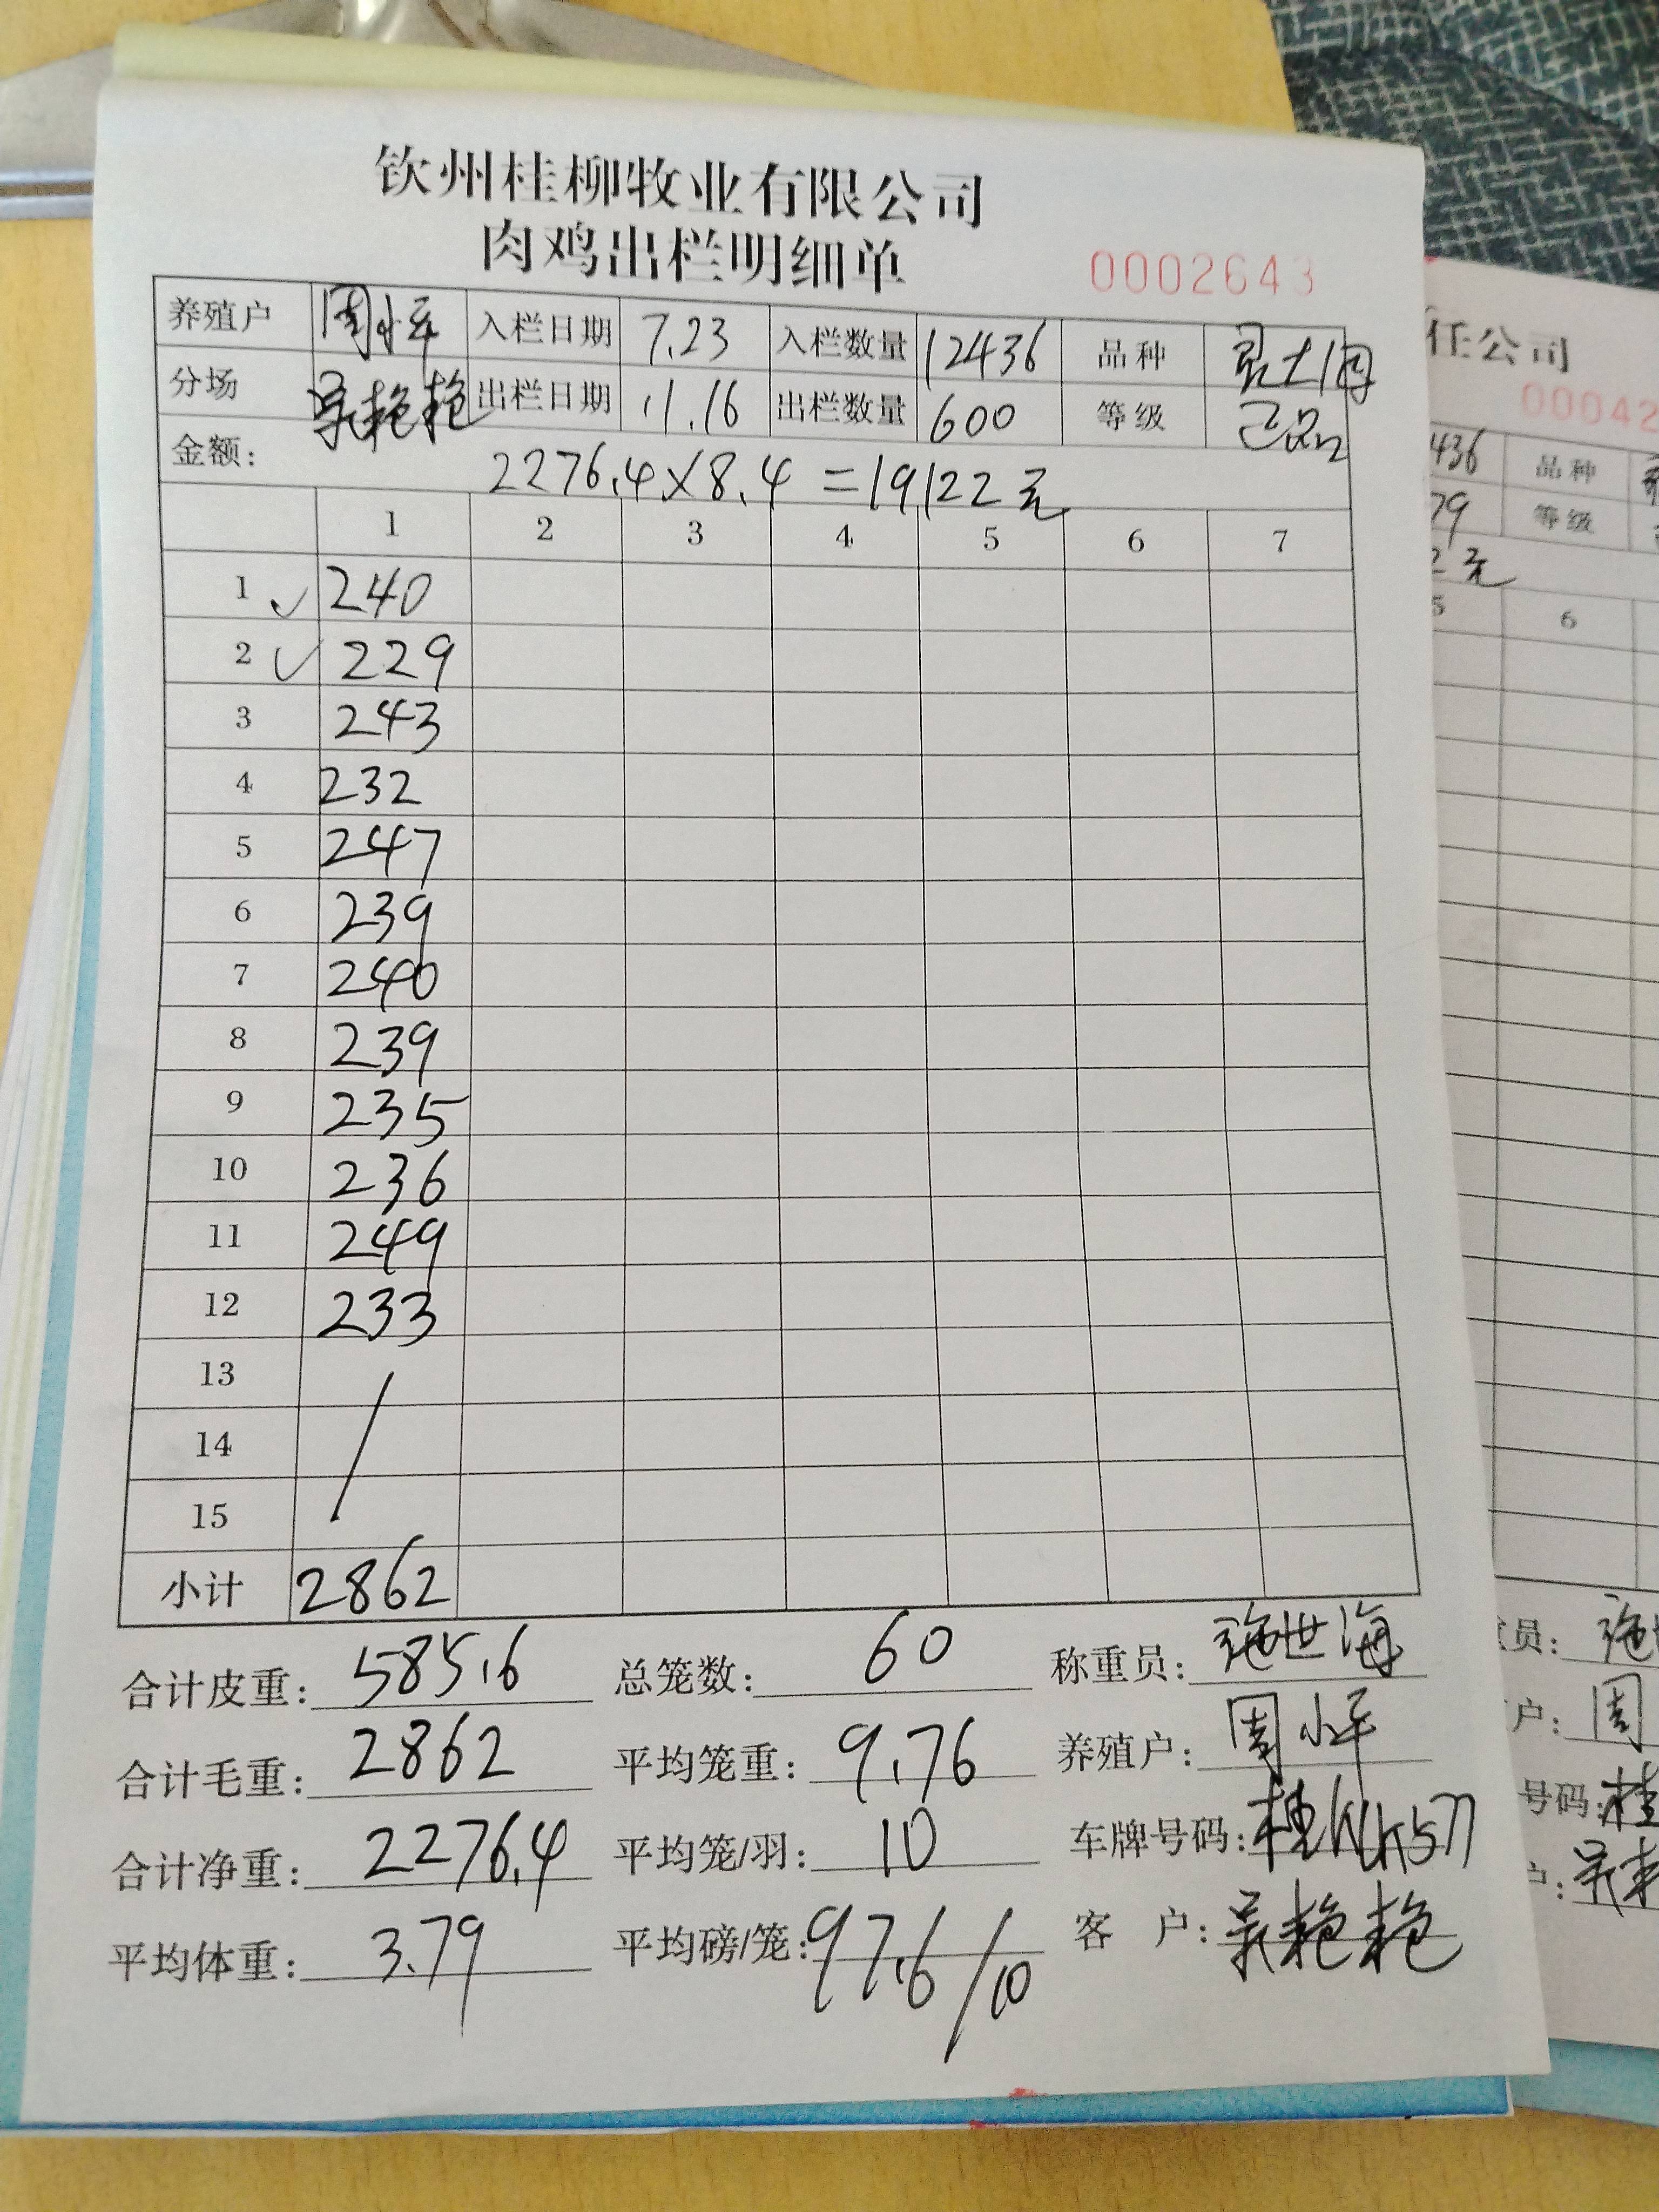 钦州桂柳牧业有限公司
肉鸡出栏明细单
0002643
养殖户 周小平 入栏日期 7.23 入栏数量 12436 品种
分场 吴艳艳 出栏日期 11.16 出栏数量 600 等级
金额: 2276.4×8.4=19122元
1 2 3 4 5 6 7
1 240
2 229
3 243
4 232
5 247
6 239
7 240
8 239
9 235
10 236
11 249
12 233
13
14
15
小计 2862
合计皮重: 585.6 总笼数: 60 称重员: 施世海
合计毛重: 2862 平均笼重: 9.76 养殖户: 周小平
合计净重: 2276.4 平均笼/羽: 10 车牌号码: 桂
平均体重: 3.79 平均磅/笼: 97.6/10 客户: 吴艳艳
任公司
00042
436 品种
79 等级
2元
5 6
员: 施
户: 周
号码: 桂
户: 吴